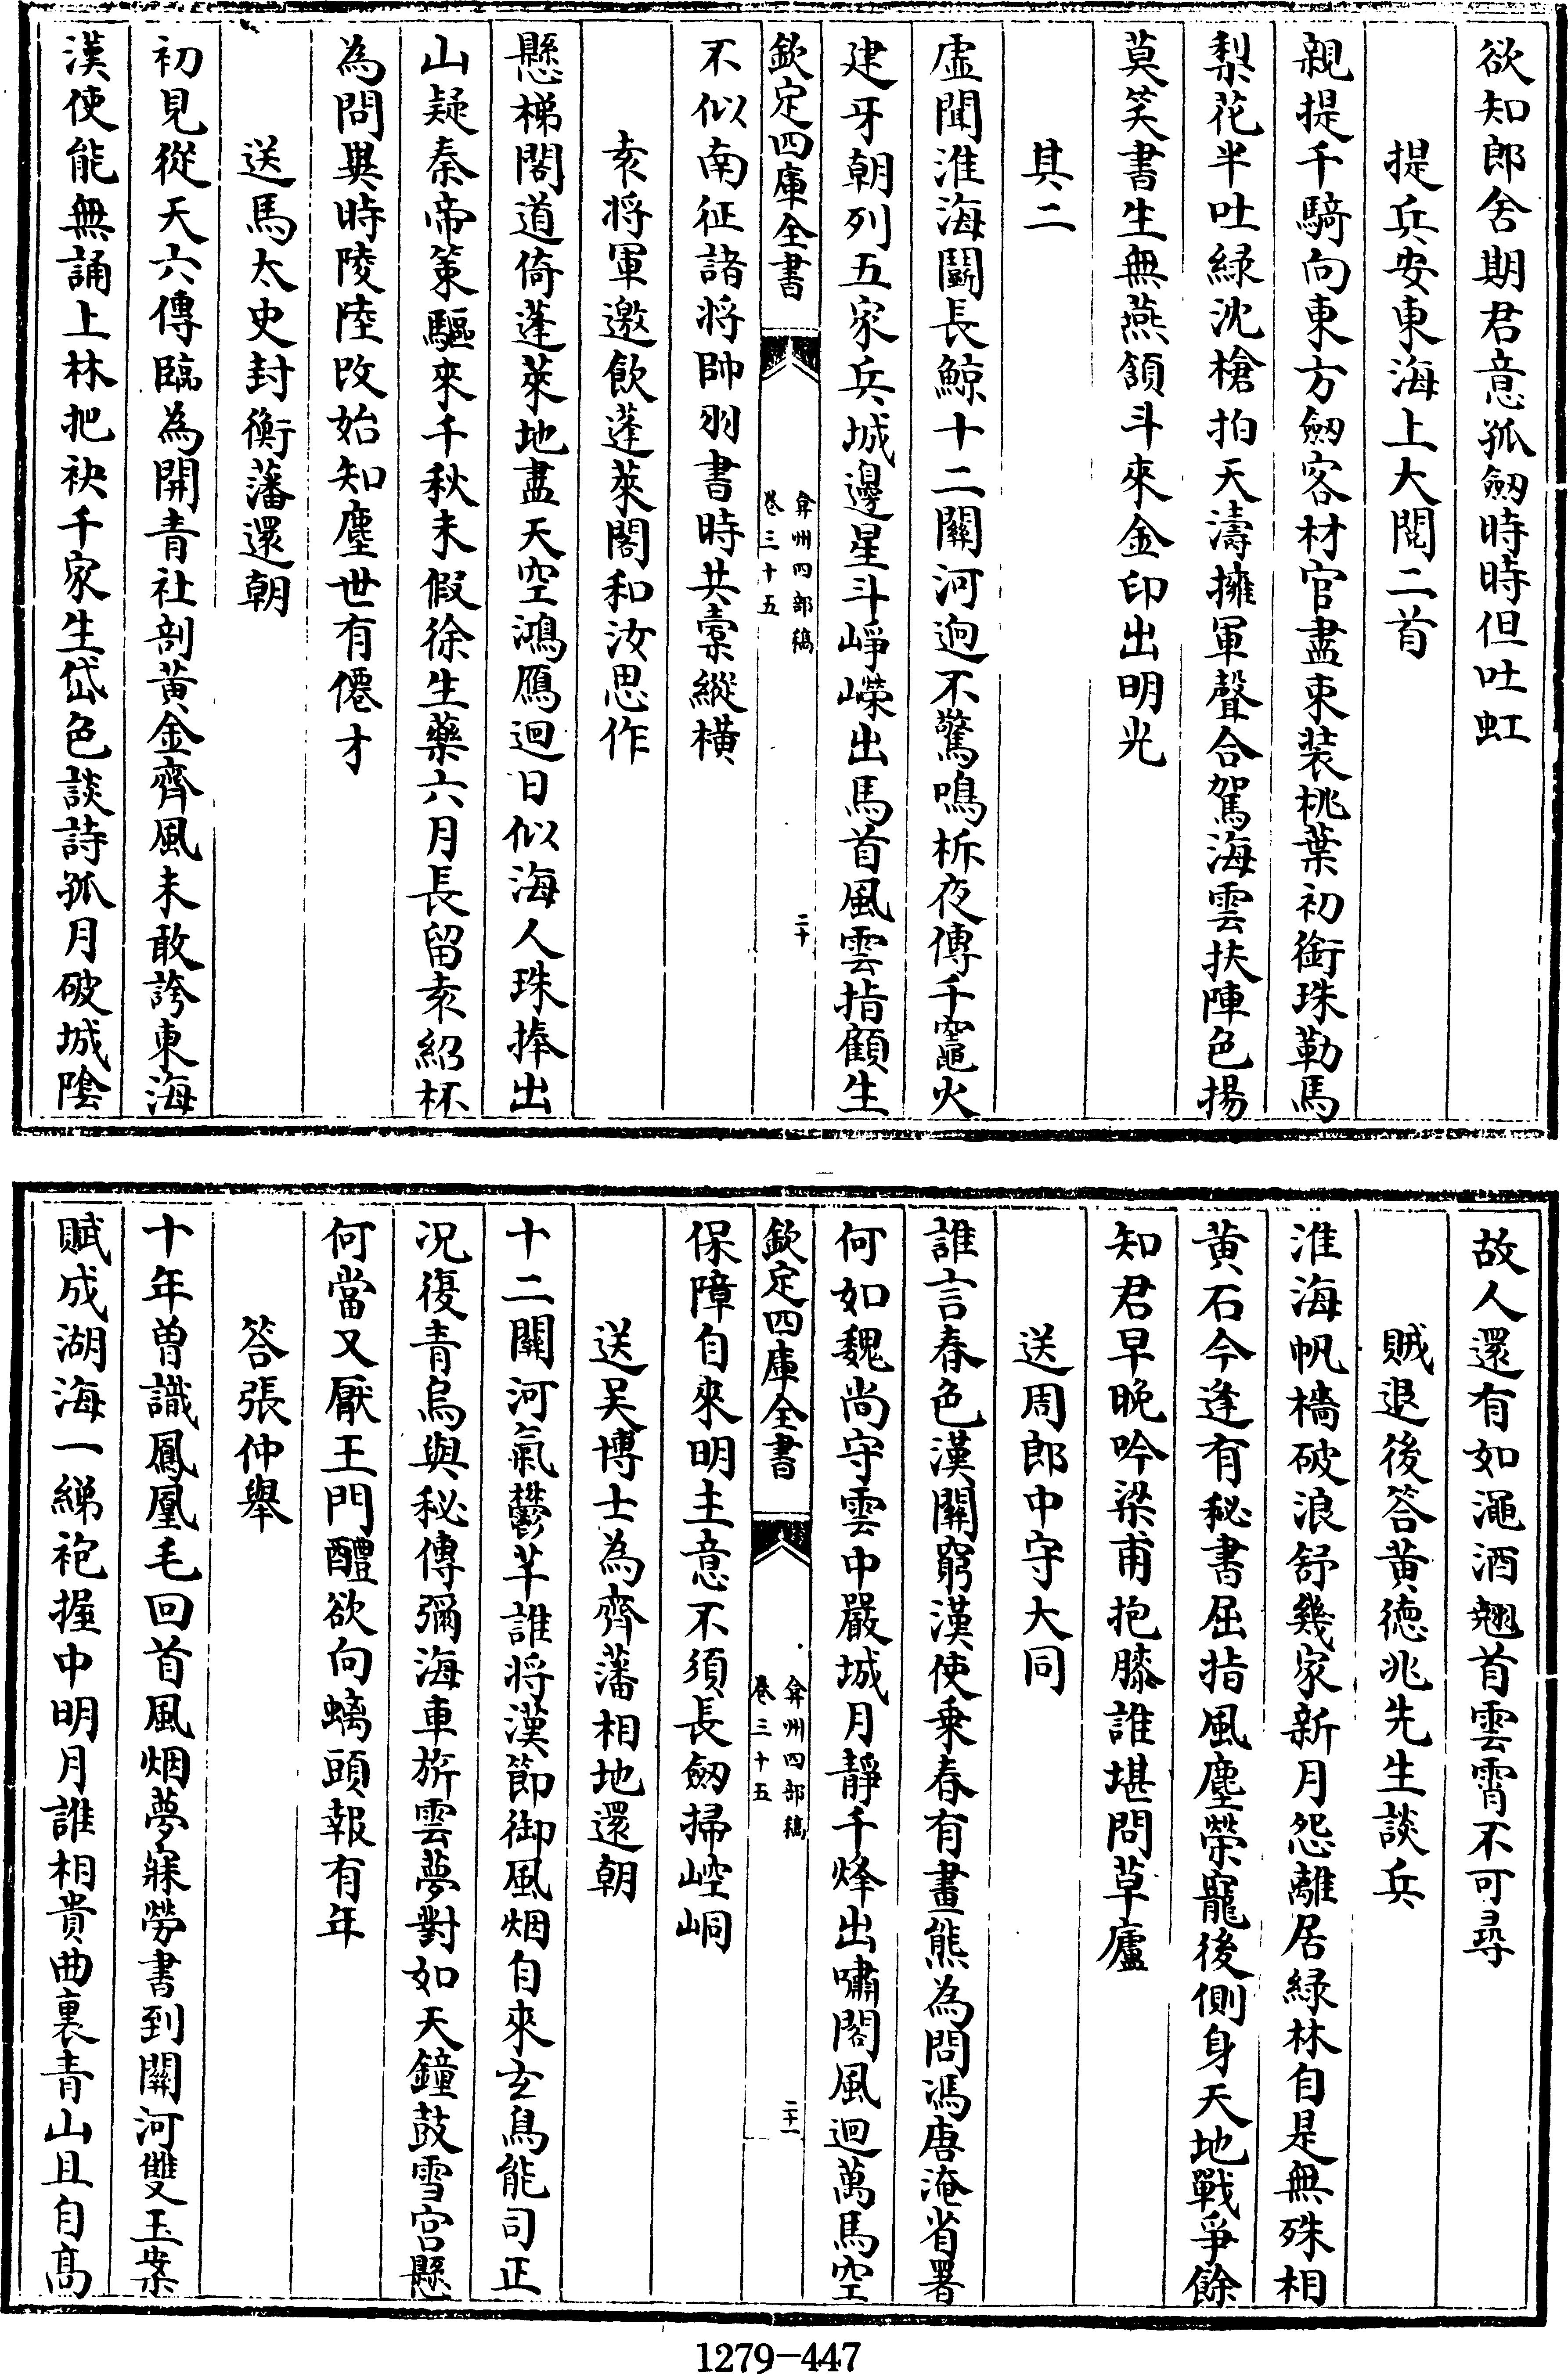 欲知郎舍期君意孤劒時時但吐虹
提兵安東海上大閱二首
親提千騎向東方劒客材官盡束装桃葉初銜珠勒馬
梨花半吐緑沈槍拍天濤擁軍聲合駕海雲扶陣色揚
莫笑書生無燕頷斗來金印出明光
其二
虛聞淮海鬭長鯨十二關河逈不驚鳴柝夜傳千竈火
建牙朝列五家兵城邊星斗崢嶸出馬首風雲指顧生
欽定四庫全書
弇州四部稿
卷三十五
二十
不似南征諸将帥羽書時共橐縱橫
袁将軍邀飲蓬萊閣和汝思作
懸梯閣道倚蓬萊地盡天空鴻鴈迴日似海人珠捧出
山疑秦帝策驅來千秋未假徐生藥六月長留袁紹杯
為問異時陵陸改始知塵世有僊才
送馬太史封衡藩還朝
初見從天六傳臨為開青社剖黄金齊風未敢誇東海
漢使能無誦上林把袂千家生岱色談詩孤月破城隂
故人還有如澠酒翹首雲霄不可尋
賊退後答黄徳兆先生談兵
淮海帆檣破浪舒幾家新月怨離居緑林自是無殊相
黄石今逢有秘書屈指風塵榮寵後側身天地戰爭餘
知君早晚吟梁甫抱膝誰堪問草廬
送周郎中守大同
誰言春色漢關窮漢使乗春有畫熊為問馮唐淹省署
何如魏尚守雲中嚴城月靜千烽出嘯閣風迴萬馬空
欽定四庫全書
弇州四部稿
卷三十五
二十一
保障自來明主意不須長劒掃崆峒
送吴博士為齊藩相地還朝
十二關河氣鬱芊誰将漢節御風烟自來玄鳥能司正
况復青烏與秘傳彌海車旂雲夢對如天鐘鼓雪宫懸
何當又厭王門醴欲向螭頭報有年
答張仲舉
十年曽識鳳凰毛回首風烟夢寐勞書到關河雙玉案
賦成湖海一綈袍握中明月誰相貴曲裏青山且自髙
1279-447